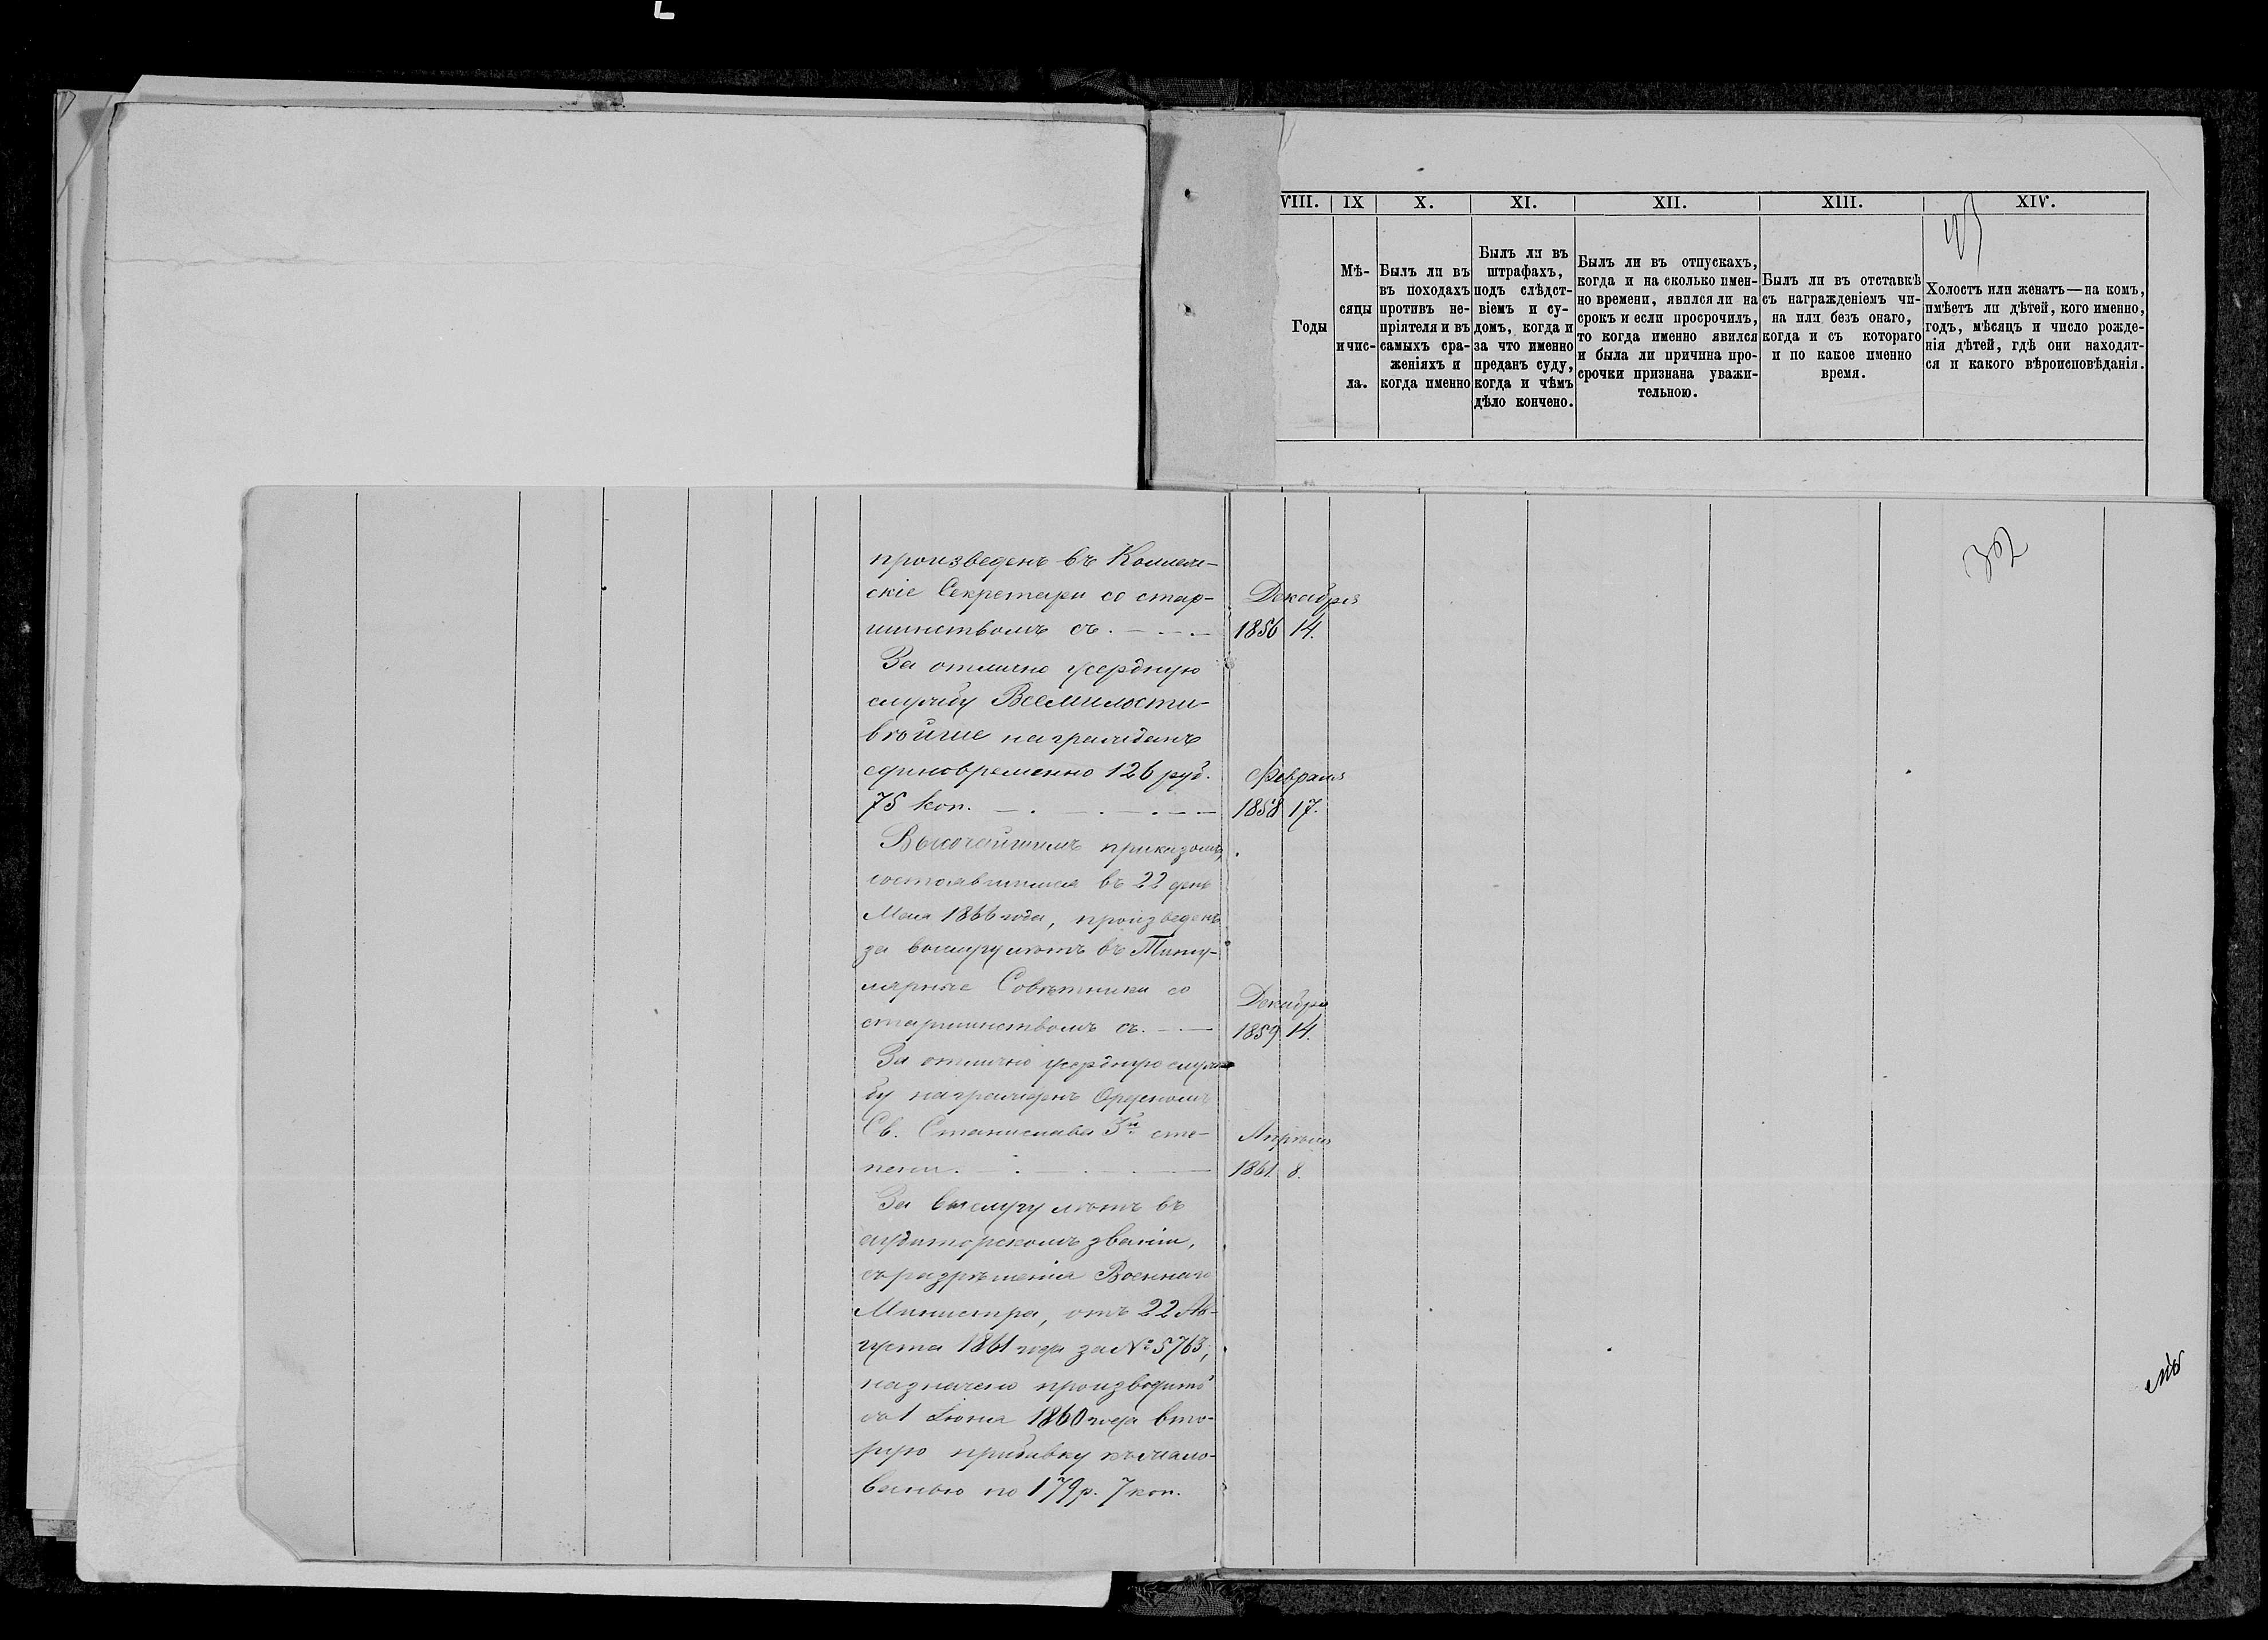 VIII. IX X. XI. XII. XIII. XIV.
Годы
Мѣ-
сяцы
и чис-
ла.
Былъ ли въ
въ походахъ
противъ не-
пріятеля и въ
самыхъ сра-
женіяхъ и
когда именно
Былъ ли въ
штрафахъ,
подъ слѣдст-
віемъ и су-
домъ, когда и
за что именно
преданъ суду,
когда и чѣмъ
дѣло кончено.
Былъ ли въ отпускахъ,
когда и на сколько имен-
но времени, явился ли на
срокъ и если просрочилъ,
то когда именно явился
и была ли причина про-
срочки признана уважи-
тельною.
Былъ ли въ отставкѣ
съ награжденіемъ чи-
на или безъ онаго,
когда и съ котораго
и по какое именно
время.
Холостъ или женатъ—на комъ,
имѣетъ ли дѣтей, кого именно,
годъ, мѣсяцъ и число рожде-
нія дѣтей, гдѣ они находят-
ся и какого вѣроисповѣданія.
302
произведенъ въ Коллеж-
скіе Секретари со стар-
шинствомъ съ.
Декабря
1856 14.
За отлично усердную
службу Всемилости-
вѣйше награжденъ
единовременно 126 руб.
75 коп.
Февраля
1858 17.
Высочайшимъ приказомъ,
состоявшимся въ 22 день
Мая 1866 года, произведенъ
за выслугу лѣтъ въ Титу-
лярные Совѣтники со
старшинствомъ съ.
Декабря
1859 14.
За отлично усердную служ-
бу награжденъ Орденомъ
Св. Станислава 3й сте-
пени.
Апрѣля
1861. 8.
За выслугу лѣтъ въ
аудиторскомъ званіи,
съ разрѣшенія Военнаго
Министра, отъ 22 Ав-
густа 1861 года за № 5763,
назначено производить
съ 1 Іюня 1860 года вто-
рую прибавку къ жало-
ванью по 179 р. 7 коп.